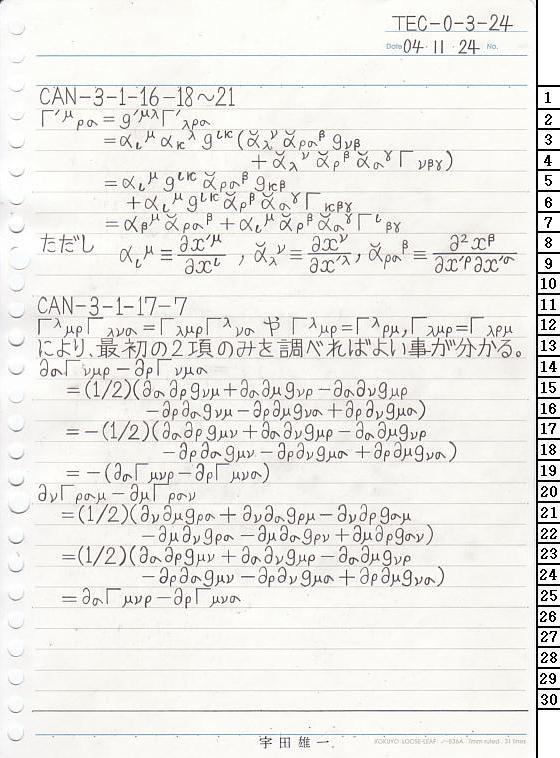 TEC-0-3-24
Date 04・11・24 No.
CAN-3-1-16-18〜21
Γ'^μ_ρσ = g'^μλ Γ'_λρσ
= α_ι^μ α_κ^λ g^ικ (ᾰ_λ^ν ᾰ_ρσ^β g_νβ
+ ᾰ_λ^ν ᾰ_ρ^β ᾰ_σ^γ Γ_νβγ)
= α_ι^μ g^ικ ᾰ_ρσ^β g_κβ
+ α_ι^μ g^ικ ᾰ_ρ^β ᾰ_σ^γ Γ_κβγ
= α_β^μ ᾰ_ρσ^β + α_ι^μ ᾰ_ρ^β ᾰ_σ^γ Γ^ι_βγ
ただし α_ι^μ ≡ ∂x'^μ/∂x^ι , ᾰ_λ^ν ≡ ∂x^ν/∂x'^λ , ᾰ_ρσ^β ≡ ∂²x^β/∂x'^ρ∂x'^σ
CAN-3-1-17-7
Γ^λ_μρ Γ_λνσ = Γ_λμρ Γ^λ_νσ や Γ^λ_μρ = Γ^λ_ρμ, Γ_λμρ = Γ_λρμ
により、最初の2項のみを調べればよい事が分かる。
∂σΓνμρ − ∂ρΓνμσ
= (1/2)(∂σ∂ρgνμ + ∂σ∂μgνρ − ∂σ∂νgμρ
− ∂ρ∂σgνμ − ∂ρ∂μgνσ + ∂ρ∂νgμσ)
= −(1/2)(∂σ∂ρgμν + ∂σ∂νgμρ − ∂σ∂μgνρ
− ∂ρ∂σgμν − ∂ρ∂νgμσ + ∂ρ∂μgνσ)
= −(∂σΓμνρ − ∂ρΓμνσ)
∂νΓρσμ − ∂μΓρσν
= (1/2)(∂ν∂μgρσ + ∂ν∂σgρμ − ∂ν∂ρgσμ
− ∂μ∂νgρσ − ∂μ∂σgρν + ∂μ∂ρgσν)
= (1/2)(∂σ∂ρgμν + ∂σ∂νgμρ − ∂σ∂μgνρ
− ∂ρ∂σgμν − ∂ρ∂νgμσ + ∂ρ∂μgνσ)
= ∂σΓμνρ − ∂ρΓμνσ
宇田雄一
KOKUYO LOOSE-LEAF ノ-836A 7mm ruled 31 lines
1
2
3
4
5
6
7
8
9
10
11
12
13
14
15
16
17
18
19
20
21
22
23
24
25
26
27
28
29
30